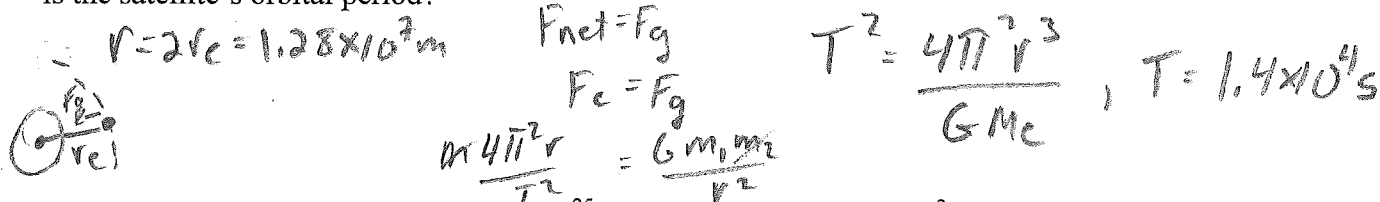 is the satellite's orbital period?
r=2re = 1.28x10⁷m
Fnet=Fg
Fc = Fg
m 4π²r / T² = G m₁m₂ / r²
T² = 4π²r³ / GMe , T= 1.4x10⁴s
re
re